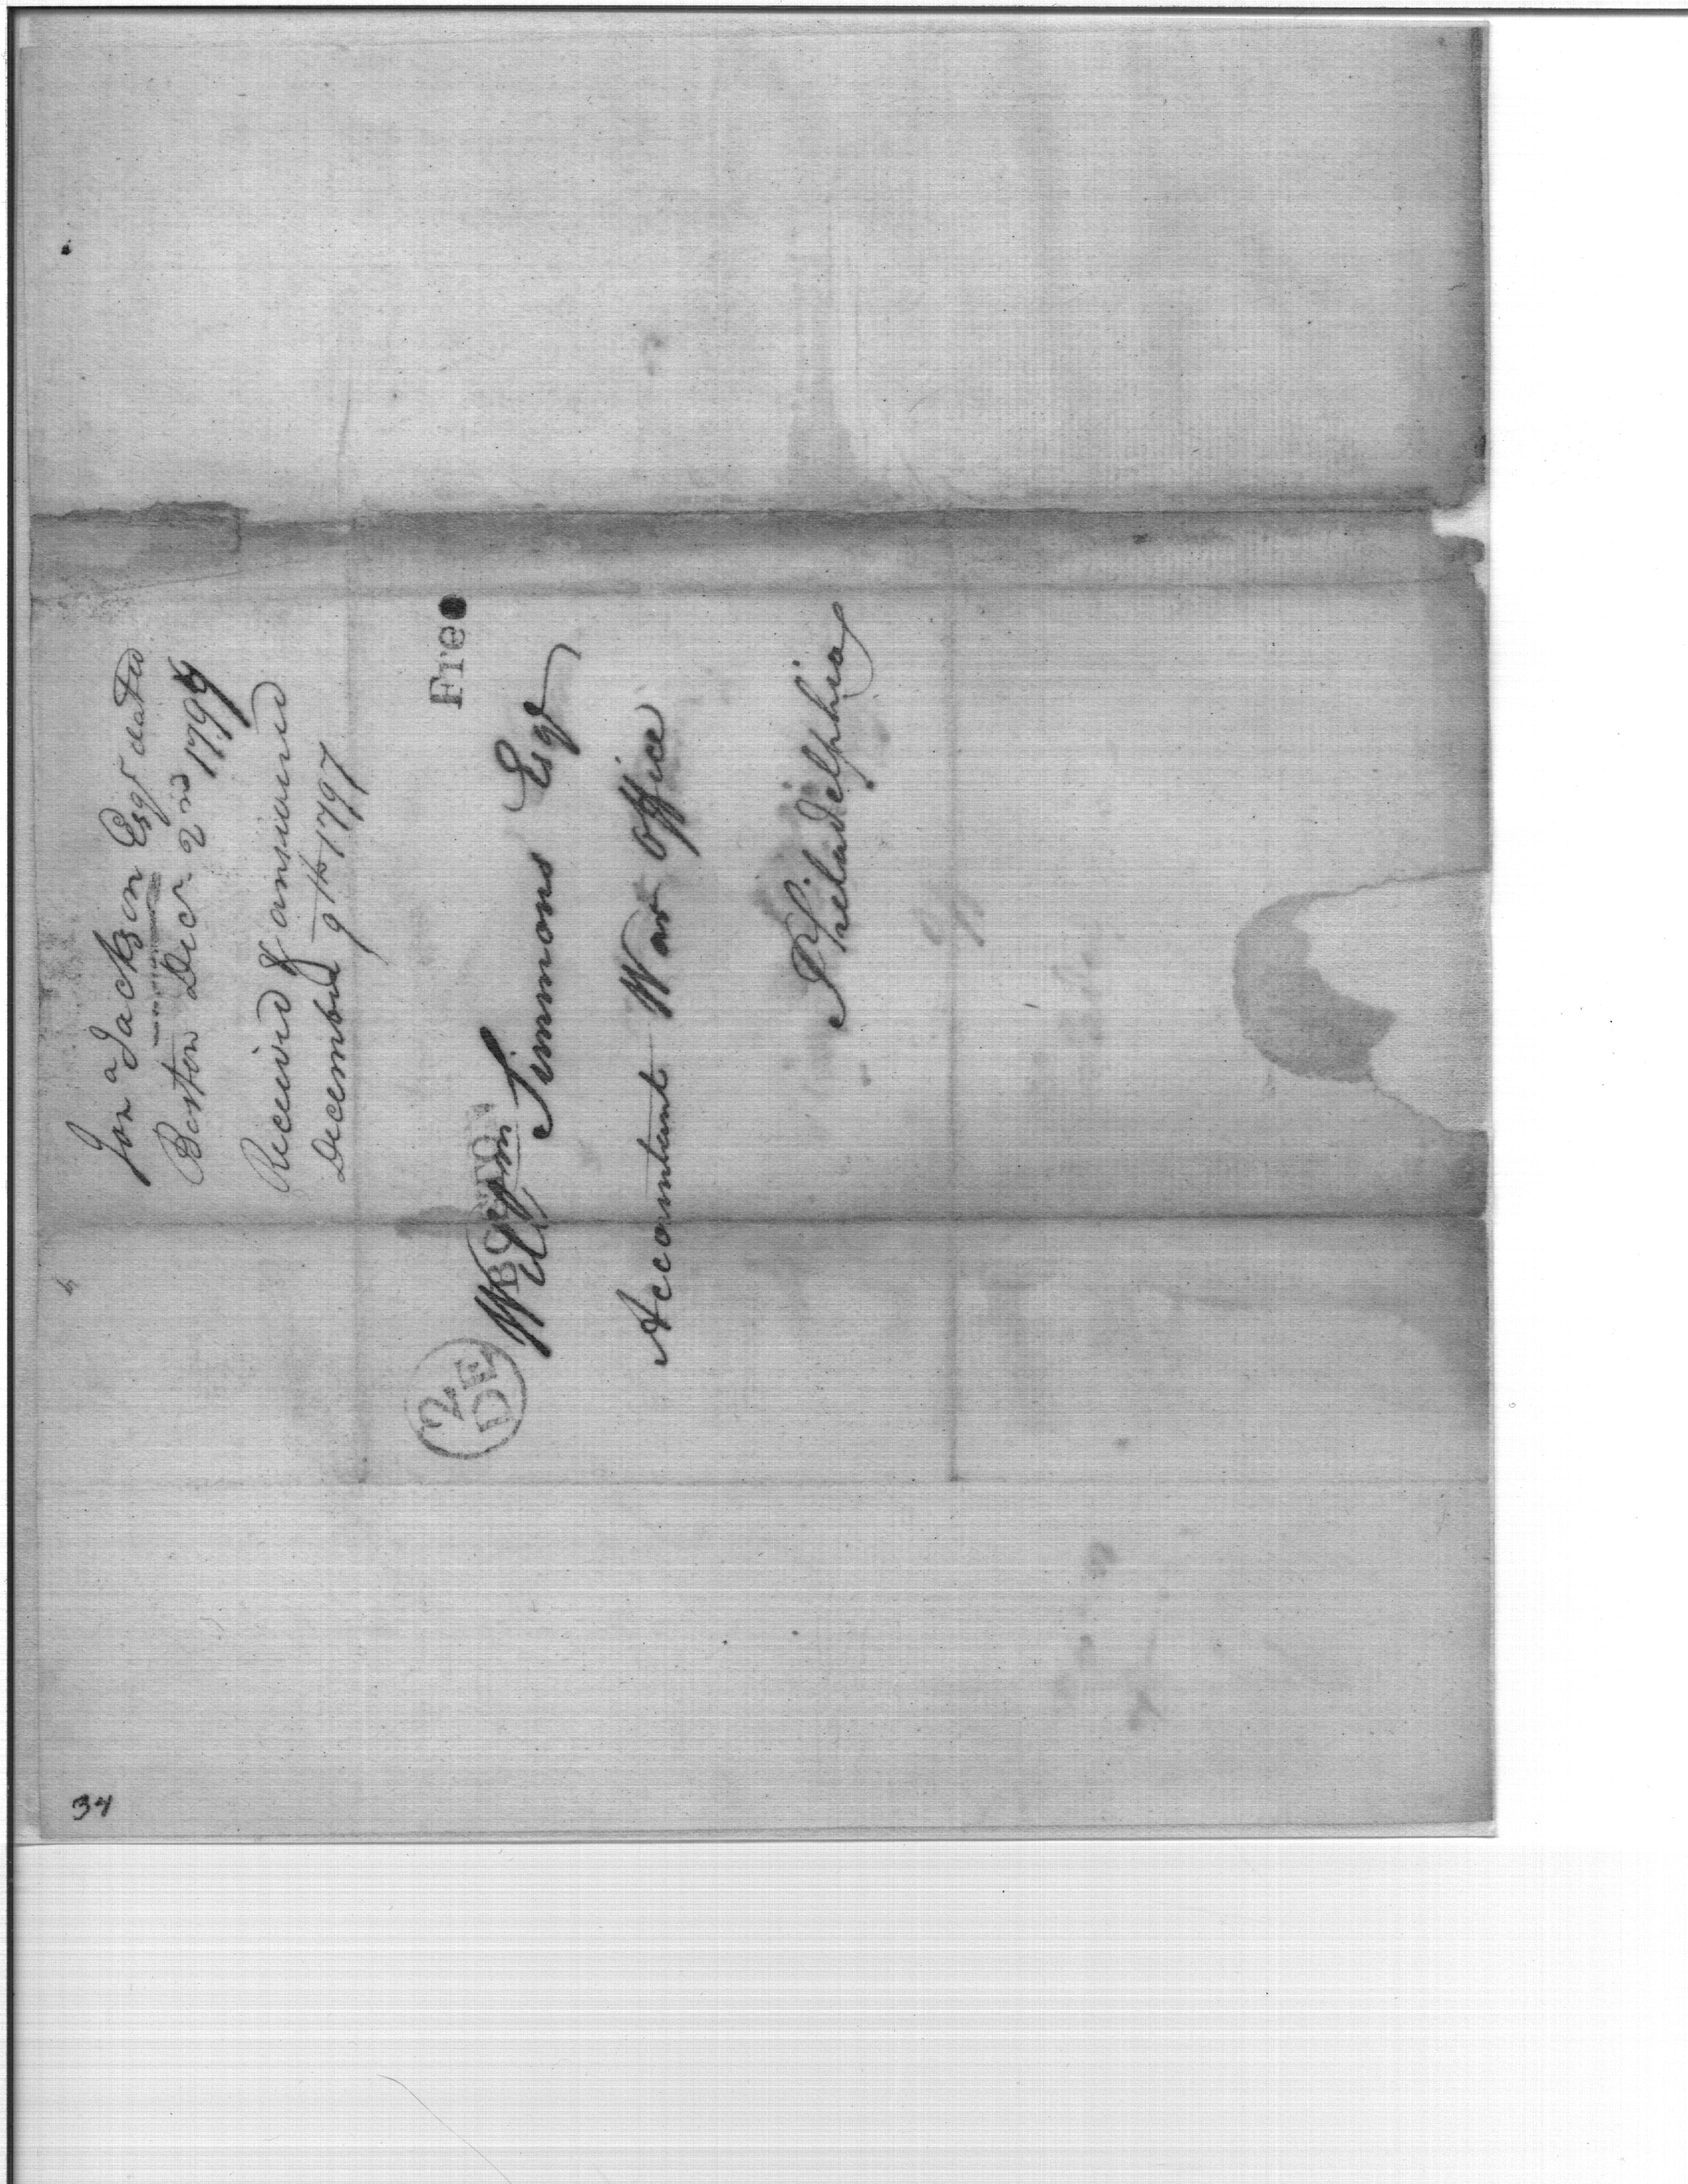 Jona Jackson Esqr dated
Boston Decr. 2nd 1797
Received & answered
December 9th 1797
Free
BOSTO
2
DE
William Simmons Esqr
Accountant War Office
Philadelphia
34